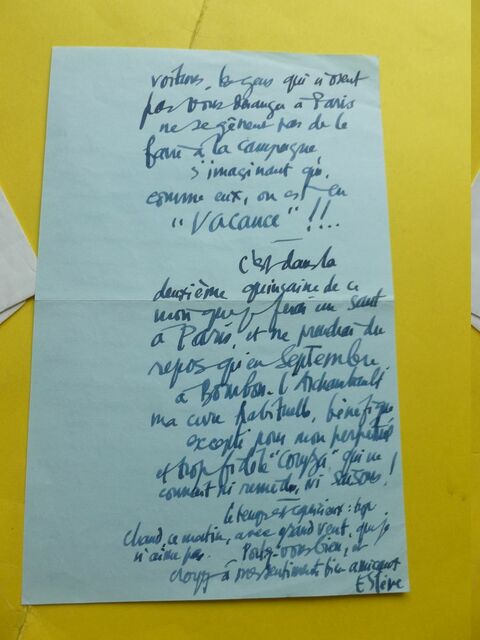 voitures, les gens qui n'osent
pas vous déranger à Paris
ne se gênent pas de le
faire à la campagne
s'imaginant que,
comme eux, on est en
"Vacance" !!...
c'est dans la
deuxième quinzaine de ce
mois que je ferai un saut
à Paris, et ne prendrai du
repos qu'en Septembre
à Bourbon-l'Archambault
ma cure habituelle, bénéfique
excepté pour mon perpétuel
et trop fidèle "Coryza" qui ne
connaît ni remèdes, ni saisons !
Le temps est capricieux : trop
chaud, ce matin, avec grand vent, que je
n'aime pas. Portez-vous bien, et
croyez à mes sentiments bien amicaux
Estève